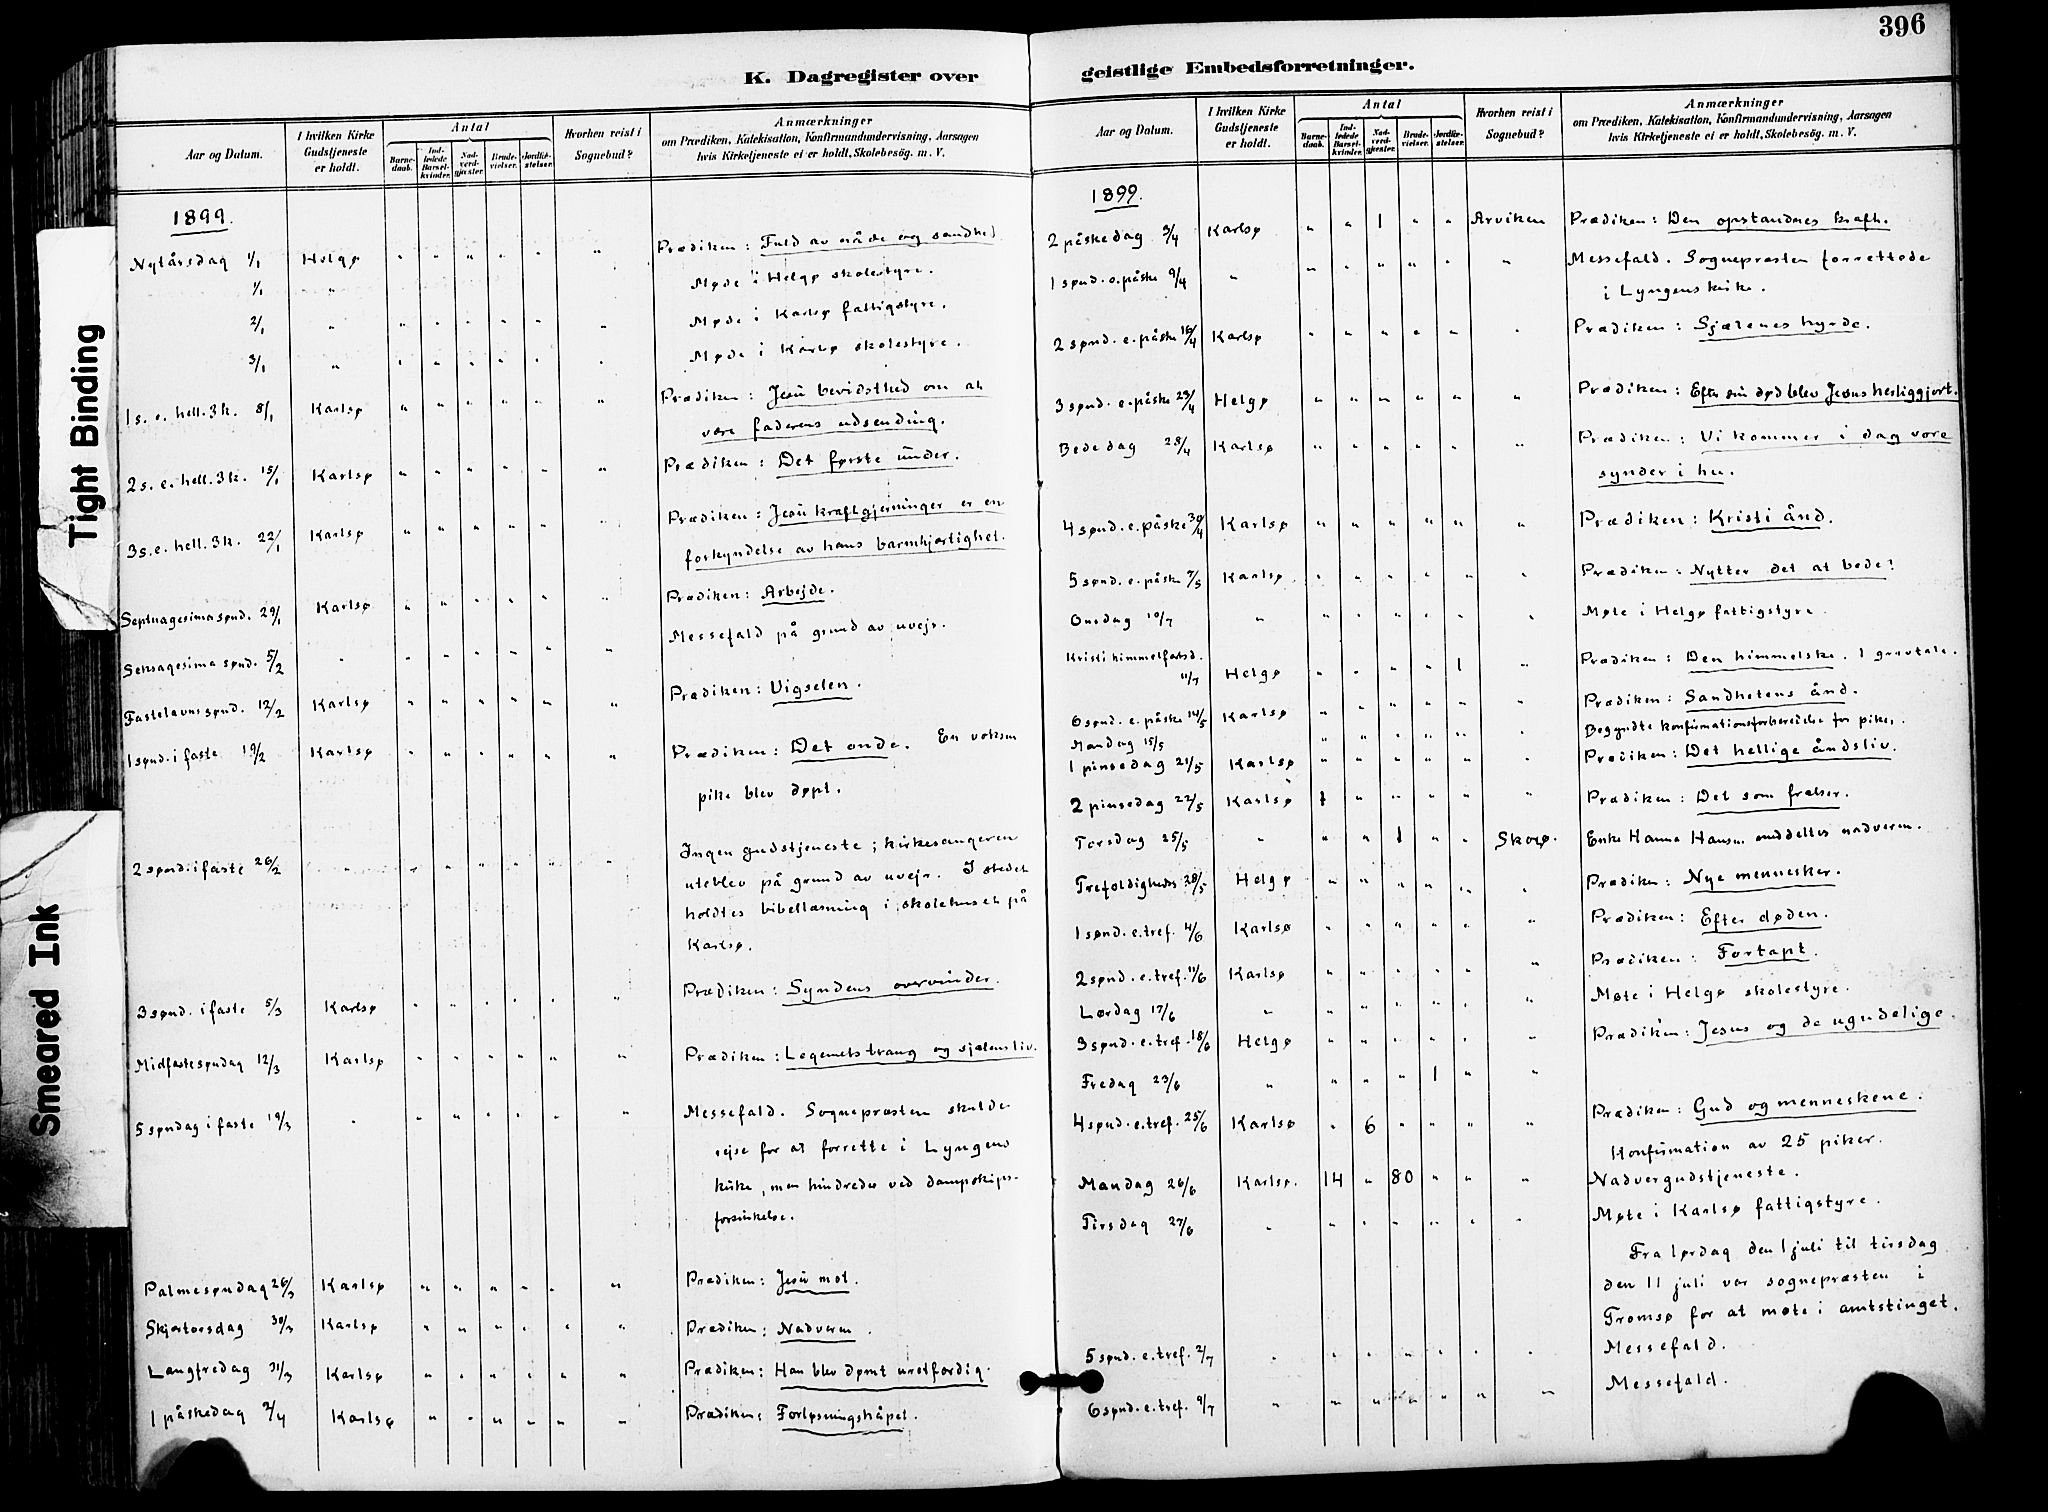 396
K. Dagregister over geistlige Embedsforretninger.
Tight Binding
Smeared Ink
Aar og Datum.
I hvilken Kirke Gudstjeneste er holdt.
Antal
Barne-daab.
Ind-ledede Barsel-kvinder.
Nad-verd-gjæster.
Brude-vielser.
Jordfæ-stelser.
Hvorhen reist i Sognebud?
Anmærkninger
om Prædiken, Katekisation, Konfirmandundervisning, Aarsagen
hvis Kirketjeneste ei er holdt, Skolebesög. m. V.
1899.
Nytårsdag 1/1 Helgø " " " " " " Prædiken: Fuld av nåde og sandhed
1/1 " Møde i Helgø skolestyre.
2/1 " " " " " " " Møde i Karlsø fattigstyre.
3/1 " " " " " " " Møde i Karlsø skolestyre.
1 s. e. hell. 3 k. 8/1 Karlsø " " " " " " Prædiken: Jesu bevidsthed om at
være faderens udsending.
2 s. e. hell. 3 k. 15/1 Karlsø " " " " " " Prædiken: Det første under.
3 s. e. hell. 3 k. 22/1 Karlsø " " " " " " Prædiken: Jesu kraftgjerninger er en
forkyndelse av hans barmhjertighet.
Septuagesima sønd. 29/1 Karlsø " " " " " " Prædiken: Arbejde.
Seksagesima sønd. 5/2 " " " " " " " Messefald på grund av uvejr.
Fastelavns sønd. 12/2 Karlsø " " " " " " Prædiken: Vigselen.
1 sønd. i faste 19/2 Karlsø " " " " " " Prædiken: Det onde. En voksen
pike blev døpt.
2 sønd. i faste 26/2 " " " " " " " Ingen gudstjeneste; kirkesangeren
uteblev på grund av uvejr. I stedet
holdtes bibellæsning i skolehuset på
Karlsø.
3 sønd. i faste 5/3 Karlsø " " " " " " Prædiken: Syndens overvinder.
Midfastesøndag 12/3 Karlsø " " " " " " Prædiken: Legemets trang og sjælens liv.
5 søndag i faste 19/3 " " " " " " " Messefald. Sognepræsten skulde
rejse for at forrette i Lyngens
kirke, men hindredes ved dampskips-
forsinkelse.
Palmesøndag 26/3 Karlsø " " " " " " Prædiken: Jesu mot.
Skjærtorsdag 30/3 Karlsø " " " " " " Prædiken: Nadveren.
Langfredag 31/3 Karlsø " " " " " " Prædiken: Han blev dømt uretfærdig.
1 påskedag 2/4 Karlsø " " " " " " Prædiken: Forløsningshåpet.
Aar og Datum.
I hvilken Kirke Gudstjeneste er holdt.
Antal
Barne-daab.
Ind-ledede Barsel-kvinder.
Nad-verd-gjæster.
Brude-vielser.
Jordfæ-stelser.
Hvorhen reist i Sognebud?
Anmærkninger
om Prædiken, Katekisation, Konfirmandundervisning, Aarsagen
hvis Kirketjeneste ei er holdt, Skolebesög. m. V.
1899.
2 påskedag 3/4 Karlsø " " 1 " " Arviken Prædiken: Den opstandnes kraft.
1 sønd. e. påske 9/4 " " " " " " " Messefald. Sognepræsten forrettede
i Lyngens kirke.
2 sønd. e. påske 16/4 Karlsø " " " " " " Prædiken: Sjælenes hyrde.
3 sønd. e. påske 23/4 Helgø " " " " " " Prædiken: Efter sin død blev Jesus herliggjort.
Bededag 28/4 Karlsø " " " " " " Prædiken: Vi kommer i dag vore
synder i hu.
4 sønd. e. påske 30/4 Karlsø " " " " " " Prædiken: Kristi ånd.
5 sønd. e. påske 7/5 Karlsø " " " " " " Prædiken: Nytter det at bede?
Onsdag 10/7 " " " " " " " Møte i Helgø fattigstyre.
Kristi himmelfartsd.
11/7 Helgø " " " " 1 " Prædiken: Den himmelske. 1 gravtale.
6 sønd. e. påske 14/5 Karlsø " " " " " " Prædiken: Sandhetens ånd.
Mandag 15/5 " " " " " " Begyndte konfirmationsforberedelse for piker.
1 pinsedag 21/5 Karlsø " " " " " " Prædiken: Det hellige åndsliv.
2 pinsedag 22/5 Karlsø 1 " " " " " Prædiken: Det som frelser.
Torsdag 25/5 " " " 1 " " Skorø. Enke Hanna Hansen meddeltes nadveren.
Trefoldigheds 28/5 Helgø " " " " " " Prædiken: Nye mennesker.
1 sønd. e. tref. 4/6 Karlsø " " " " " " Prædiken: Efter døden.
2 sønd. e. tref. 11/6 Karlsø " " " " " " Prædiken: Fortapt.
Lørdag 17/6 " " " " " " " Møte i Helgø skolestyre.
3 sønd. e. tref. 18/6 Helgø " " " " " " Prædiken: Jesus og de ugudelige.
Fredag 23/6 " " " " 1 " "
4 sønd. e. tref. 25/6 Karlsø " 6 " " " " Prædiken: Gud og menneskene.
Konfirmation av 25 piker.
Mandag 26/6 Karlsø. 14 " 80 " " " Nadvergudstjeneste.
Tirsdag 27/6 " " " " " " " Møte i Karlsø fattigstyre.
Fra lørdag den 1 juli til tirsdag
den 11 juli var sognepræsten i
Tromsø for at møte i amtstinget.
5 sønd. e. tref. 2/7 " " " " " " " Messefald.
6 sønd. e. tref. 9/7 " " " " " " " Messefald.